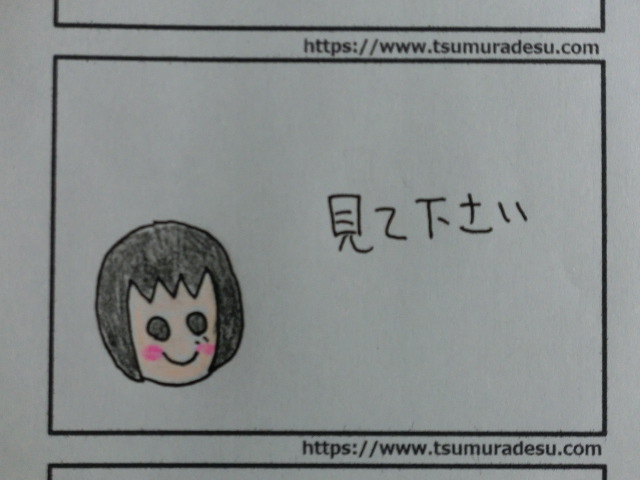 https://www.tsumuradesu.com
見て下さい
https://www.tsumuradesu.com